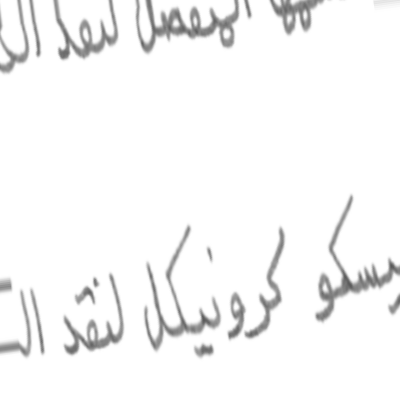 المفصل لنقد ال
يسكو كرونيكل لنقد ال